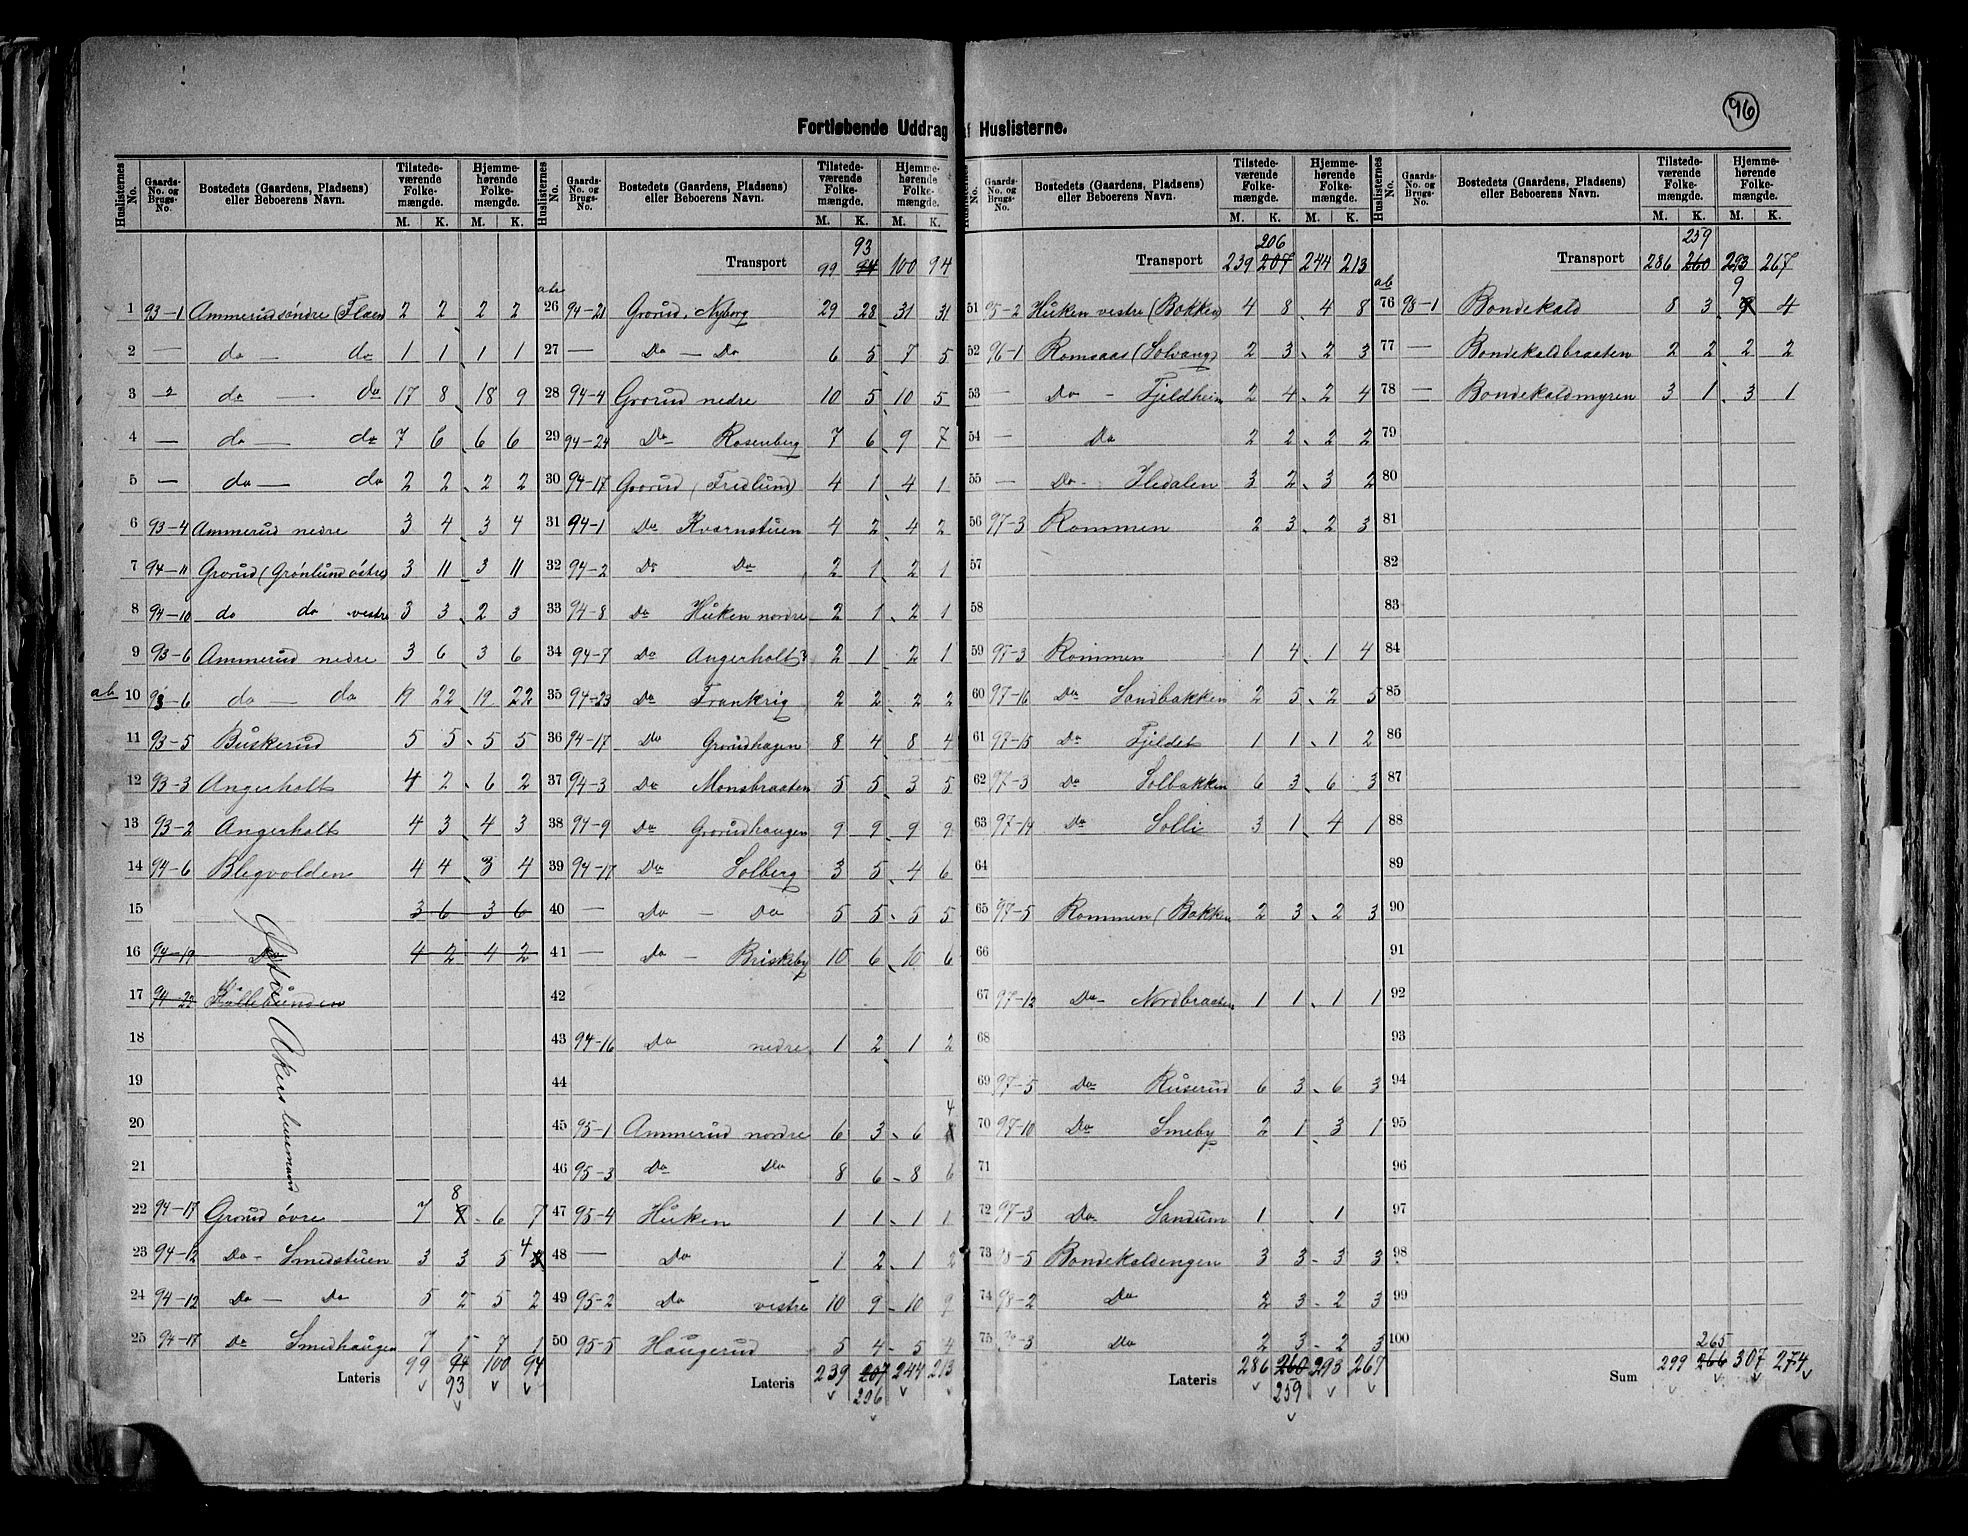 96
Fortløbende Uddrag af Huslisterne.
Huslisternes No. Gaards-No. og Brugs-No. Bostedets (Gaardens, Pladsens) eller Beboerens Navn. Tilstedeværende Folkemængde. M. K. Hjemmehørende Folkemængde. M. K.
1 93-1 Ammerud søndre (Flaen 2 2 2 2
2 — do — do 1 1 1 1
3 -2 do — do 17 8 18 9
4 — do — do 7 6 6 6
5 — do — do 2 2 2 2
6 93-4 Ammerud nedre 3 4 3 4
7 94-11 Grorud (Grønlund østre) 3 11 3 11
8 94-10 do do vestre 3 3 2 3
9 93-6 Ammerud nedre 3 6 3 6
ab 10 93-6 do — do 19 22 19 22
11 93-5 Buskerud 5 5 5 5
12 93-3 Angerholt 4 2 6 2
13 93-2 Angerholt 4 3 4 3
14 94-6 Blegvolden 4 4 3 4
15 3 6 3 6
16 94-19 Do 4 2 4 2
17 94-22 Kallebunden
18
19
20
21
Østre Akers lensmand
22 94-17 Grorud øvre 7 8 6 7
23 94-12 Do - Smedstuen 3 3 5 4
24 94-12 Do — Do 5 2 5 2
25 94-17 Do Smedhaugen 7 1 7 1
Lateris 99 94 100 94
93
Huslisternes No. Gaards-No. og Brugs-No. Bostedets (Gaardens, Pladsens) eller Beboerens Navn. Tilstedeværende Folkemængde. M. K. Hjemmehørende Folkemængde. M. K.
93
Transport 99 94 100 94
ab 26 94-21 Grorud, Nyborg 29 28 31 31
27 — Do — Do 6 5 7 5
28 94-4 Grorud nedre 10 5 10 5
29 94-24 Do - Rosenberg 7 6 9 7
30 94-17 Grorud (Fredlund) 4 1 4 1
31 94-1 Do Kvernstuen 4 2 4 2
32 94-2 Do Do 2 1 2 1
33 94-8 Do Huken nordre 2 1 2 1
34 94-7 Do Angerholt 2 1 2 1
35 94-23 Do Frankrig 2 2 2 2
36 94-17 Do Grorudhagen 8 4 8 4
37 94-3 Do Monsbraaten 5 5 3 5
38 94-9 Do Grorudhaugen 9 9 9 9
39 94-17 Do Solberg 3 5 4 6
40 — Do — Do 5 5 5 5
41 — Do — Briskeby 10 6 10 6
42
43 94-16 Do nedre 1 2 1 2
44
45 95-1 Ammerud nordre 6 3 6 4
46 95-3 Do Do 8 6 8 6
47 95-4 Huken 1 1 1 1
48 — Do 1 2 1 2
49 95-2 Do vestre 10 9 10 9
50 95-5 Haugerud 5 4 5 4
Lateris 239 207 244 213
206
Huslisternes No. Gaards-No. og Brugs-No. Bostedets (Gaardens, Pladsens) eller Beboerens Navn. Tilstedeværende Folkemængde. M. K. Hjemmehørende Folkemængde. M. K.
206
Transport 239 207 244 213
51 95-2 Huken vestre (Bakken) 4 8 4 8
52 96-1 Romsaas (Solvang) 2 3 2 3
53 — Do - Fjeldheim 2 4 2 4
54 — Do 2 2 2 2
55 — Do - Iledalen 3 2 3 2
56 97-3 Rommen 2 3 2 3
57
58
59 97-3 Rommen 1 4 1 4
60 97-16 Do Sandbakken 2 5 2 5
61 97-15 Do Fjeldet 1 1 1 2
62 97-3 Do Solbakken 6 3 6 3
63 97-14 Do Solli 3 1 4 1
64
65 97-5 Rommen (Bakken 2 3 2 3
66
67 97-12 Do - Nordbraaten 1 1 1 1
68
69 97-5 Do Ruserud 6 3 6 3
70 97-10 Do Smeby 2 1 3 1
71
72 97-3 Do Sandum 1 1
73 98-5 Bondekaldengen 3 3 3 3
74 98-2 Do 2 3 2 3
75 98-3 Do 2 3 2 3
Lateris 286 260 293 267
259
Huslisternes No. Gaards-No. og Brugs-No. Bostedets (Gaardens, Pladsens) eller Beboerens Navn. Tilstedeværende Folkemængde. M. K. Hjemmehørende Folkemængde. M. K.
259
Transport 286 260 293 267
ab 76 98-1 Bondekald 8 3 9 4
77 — Bondekaldbraaten 2 2 2 2
78 — Bondekaldmyren 3 1 3 1
79
80
81
82
83
84
85
86
87
88
89
90
91
92
93
94
95
96
97
98
99
100
265
Sum 299 266 307 274